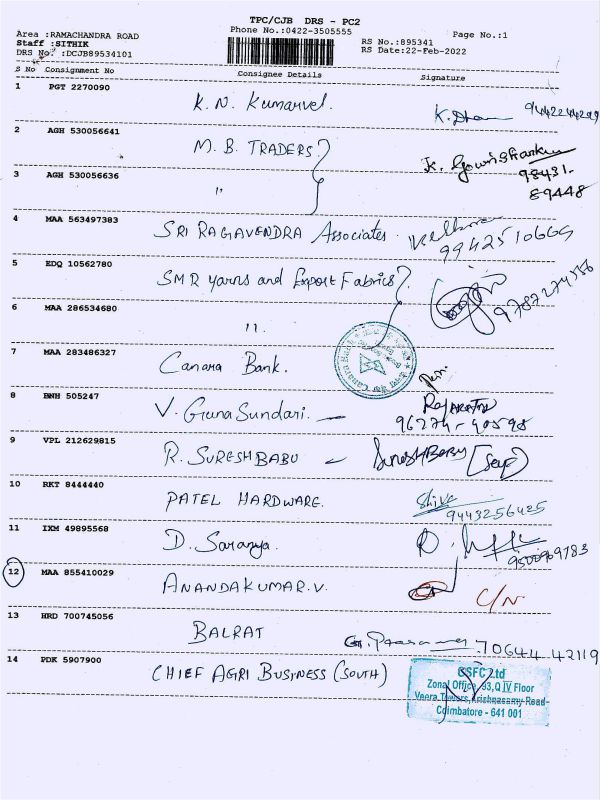 TPC/CJB DRS - PC2
Area :RAMACHANDRA ROAD Phone No.:0422-3505555 Page No.:1
Staff :SITHIK RS No.:895341
DRS No. :DCJB89534101 RS Date:22-Feb-2022
S No Consignment No Consignee Details Signature
1 PGT 2270090 K. N. Kumarvel.
2 AGH 530056641 M. B. TRADERS
3 AGH 530056636 "
98431-
89448
4 MAA 563497383 SRI RAGAVENDRA Associates.
9942510669
5 EDQ 10562780 SMR yarns and Export Fabrics
6 MAA 286534680 "
7 MAA 283486327 Canara Bank.
8 BNH 505247 V. GunaSundari.
9 VPL 212629815 R. SURESHBABU
10 RKT 8444440 PATEL HARDWARE. Shiva
9443256425
11 IXM 49895568 D. Saranya.
12 MAA 855410029 ANANDAKUMAR.V. C/N
13 HRD 700745056 BALRAT 70644 42119
14 PDK 5907900 CHIEF AGRI BUSINESS (SOUTH)
GSFC Ltd
Zonal Office, 93,Q IV Floor
Veera Towers, Krishnasamy Road
Coimbatore - 641 001